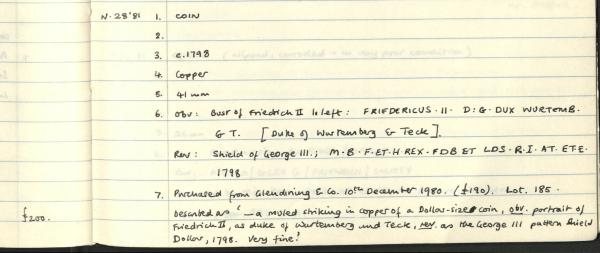 N·28'81 1. COIN
2.
3. c.1798
4. Copper
5. 41 mm
6. Obv: Bust of Friedrich II to left: FRIFDERICUS·II· D:G·DUX WURTEMB.
& T. [Duke of Wurtemberg & Teck].
Rev: Shield of George III.; M·B·F·ET·H·REX·FDB ET LDS·R·I·AT·ET·E·
1798
7. Purchased from Glendining & Co. 10th December 1980. (£190). Lot. 185.
£200. Described as '— a muled striking in copper of a Dollar-size coin, obv. portrait of
Friedrich II, as duke of Wurtemberg and Teck, rev. as the George III pattern Shield
Dollar, 1798. Very fine.'